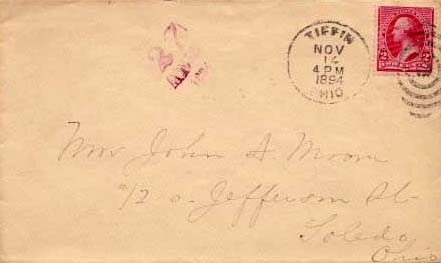 TIFFIN
NOV
14
4 PM
1894
OHIO
2
John A. Moore
Jefferson St.
Toledo
Ohio